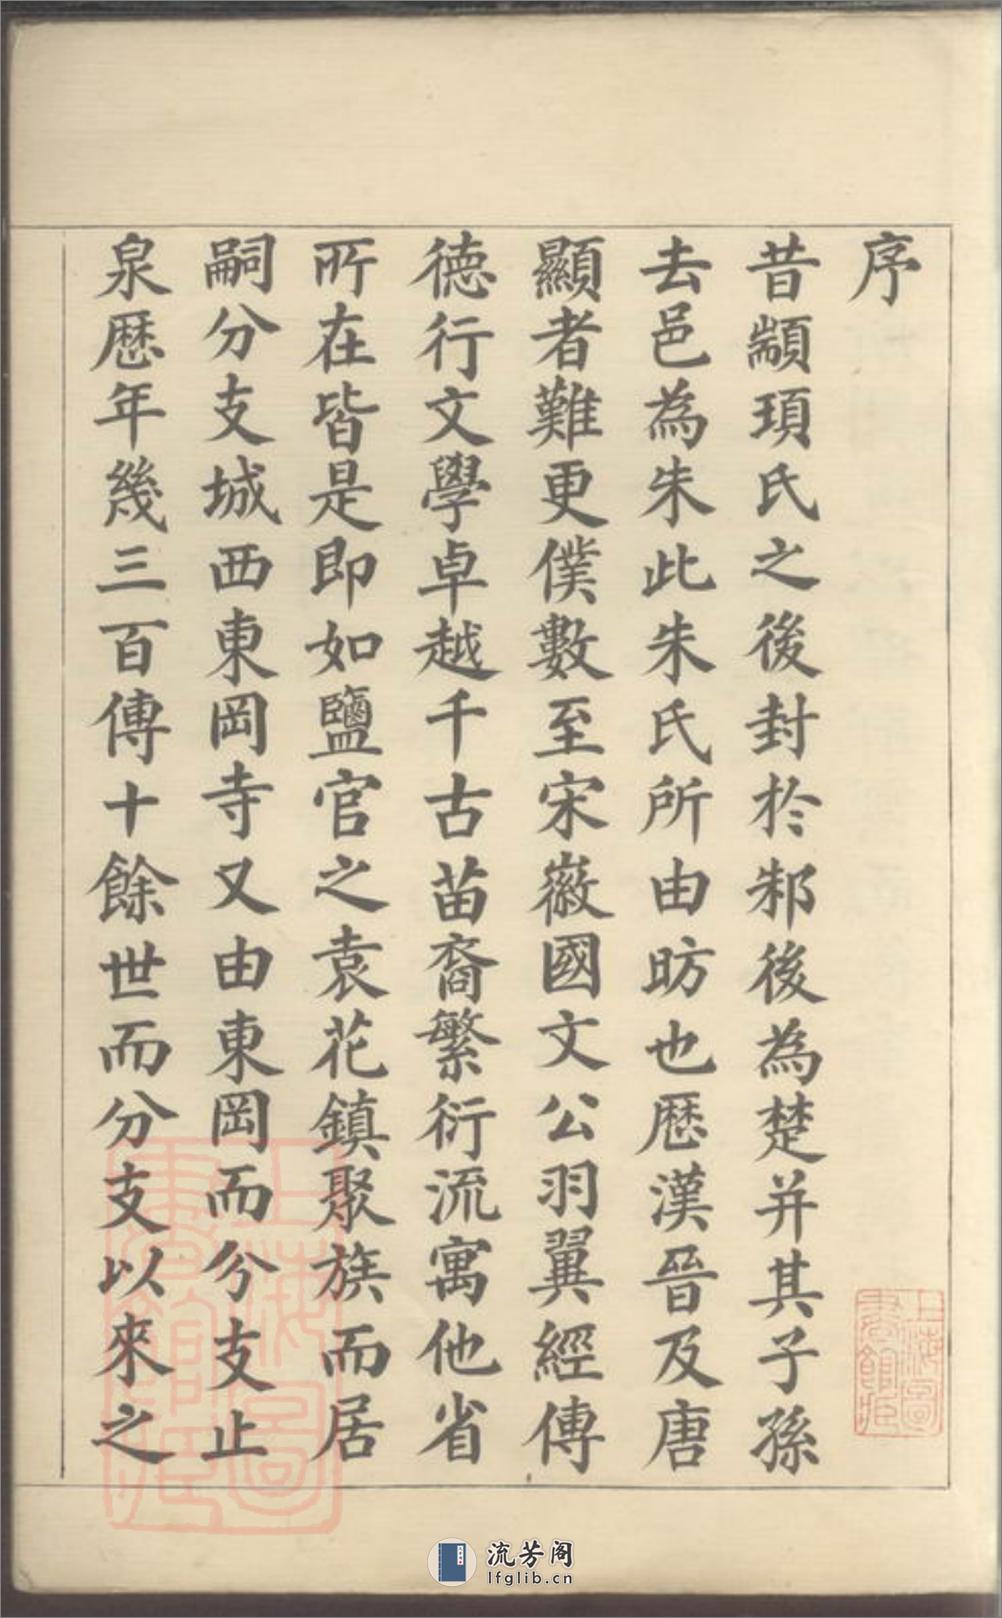 序
昔顓頊氏之後封於邾後為楚并其子孫
去邑為朱此朱氏所由昉也歴漢晉及唐
顯者難更僕數至宋徽國文公羽翼經傳
德行文學卓越千古苗裔繁衍流寓他省
所在皆是即如鹽官之袁花鎮聚族而居
嗣分支城西東岡寺又由東岡而分支止
泉歴年幾三百傳十餘世而分支以來之
上海圖書館藏
上海圖書館藏
流芳阁
lfglib.cn